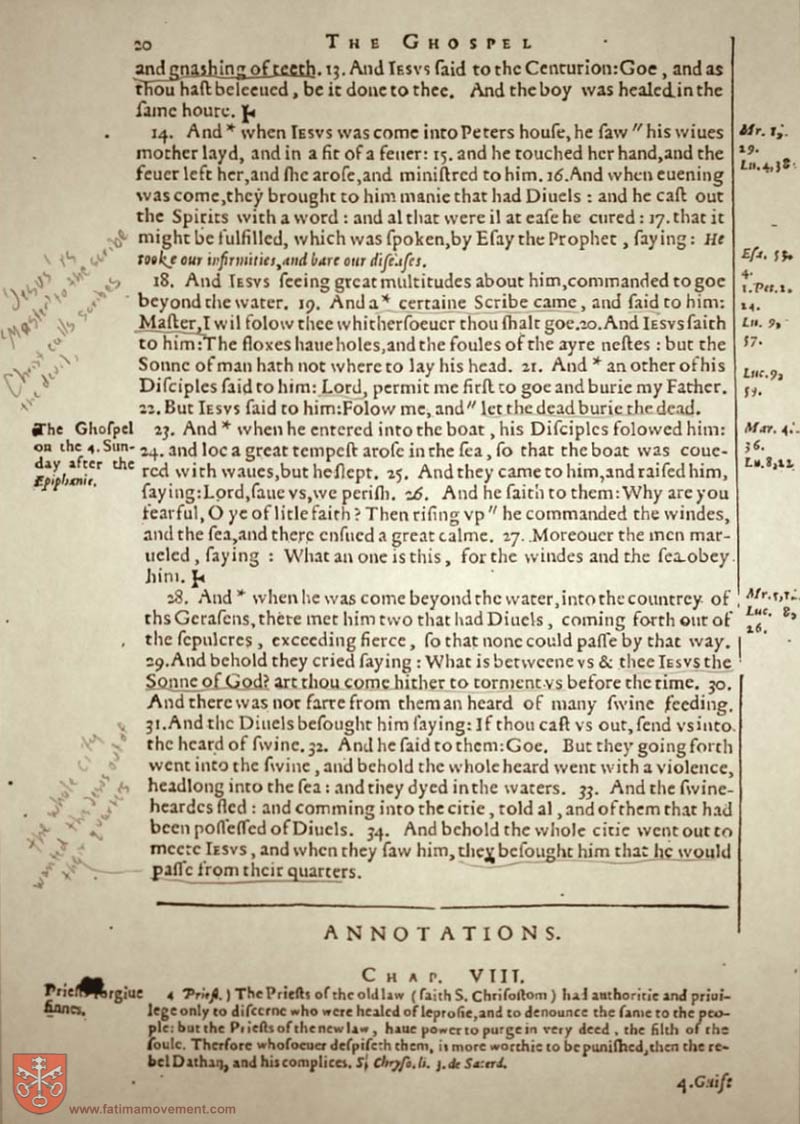 20 THE GHOSPEL
and gnashing of teeth. 13. And IESVS ſaid to the Centurion: Goe, and as
thou haſt beleeued, be it done to thee. And the boy was healed in the
ſame houre.
14. And * when IESVS was come into Peters houſe, he ſaw " his wiues
mother layd, and in a fit of a feuer: 15. and he touched her hand, and the
feuer left her, and ſhe aroſe, and miniſtred to him. 16. And when euening
was come, they brought to him manie that had Diuels: and he caſt out
the Spirits with a word: and al that were il at eaſe he cured: 17. that it
might be fulfilled, which was ſpoken, by Eſay the Prophet, ſaying: He
tooke our infirmities, and bare our diſeaſes.
18. And IESVS ſeeing great multitudes about him, commanded to goe
beyond the water. 19. And a * certaine Scribe came, and ſaid to him:
Maſter, I wil folow thee whitherſoeuer thou ſhalt goe. 20. And IESVS ſaith
to him: The floxes haue holes, and the foules of the ayre neſtes: but the
Sonne of man hath not where to lay his head. 21. And * an other of his
Diſciples ſaid to him: Lord, permit me firſt to goe and burie my Father.
22. But IESVS ſaid to him: Folow me, and " let the dead burie the dead.
23. And * when he entered into the boat, his Diſciples folowed him:
24. and loe a great tempeſt aroſe in the ſea, ſo that the boat was coue-
red with waues, but he ſlept. 25. And they came to him, and raiſed him,
ſaying: Lord, ſaue vs, we periſh. 26. And he ſaith to them: Why are you
fearful, O ye of litle faith? Then riſing vp " he commanded the windes,
and the ſea, and there enſued a great calme. 27. Moreouer the men mar-
ueled, ſaying: What an one is this, for the windes and the ſea obey
him.
28. And * when he was come beyond the water, into the countrey of
ths Geraſens, there met him two that had Diuels, coming forth out of
the ſepulcres, exceeding fierce, ſo that none could paſſe by that way.
29. And behold they cried ſaying: What is betweene vs & thee IESVS the
Sonne of God? art thou come hither to torment vs before the time. 30.
And there was not farre from them an heard of many ſwine feeding.
31. And the Diuels beſought him ſaying: If thou caſt vs out, ſend vs into
the heard of ſwine. 32. And he ſaid to them: Goe. But they going forth
went into the ſwine, and behold the whole heard went with a violence,
headlong into the ſea: and they dyed in the waters. 33. And the ſwine-
heardes fled: and comming into the citie, told al, and of them that had
been poſſeſſed of Diuels. 34. And behold the whole citie went out to
meete IESVS, and when they ſaw him, they beſought him that he would
paſſe from their quarters.
Mr. 1,
29.
Lu. 4, 38.
Eſa. 53,
4.
1. Pet. 2.
24.
Lu. 9,
57.
Luc. 9,
59.
Mar. 4.
36.
Lu. 8, 22
Mr. 5, 1.
Luc. 8,
26.
Jesus is
"Master" to the scribe
Christ calls scribes
the devil,
The Ghoſpel
on the 4. Sun-
day after the
Epiphanie.
the whole City
wanted the Jews out of
their quarters
ANNOTATIONS.
CHAP. VIII.
Prieſts forgiue
ſinnes.
4 Prieſt.) The Prieſts of the old law (ſaith S. Chriſoſtom) had authoritie and priui-
lege only to diſcerne who were healed of leproſie, and to denounce the ſame to the peo-
ple: but the Prieſts of the new law, haue power to purge in very deed, the filth of the
ſoule. Therfore whoſoeuer deſpiſeth them, is more worthie to be puniſhed, then the re-
bel Dathan, and his complices. S. Chryſo. li. 3. de Sacerd.
4. Guift
www.fatimamovement.com